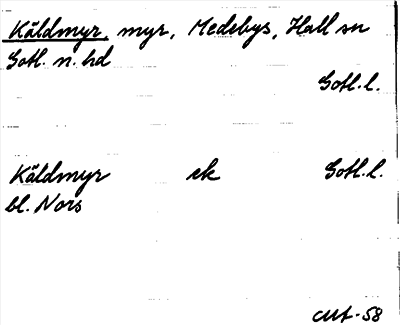 Käldmyr, myr, Medebys, Hall sn
Gotl. n. hd
Gotl. l.
Käldmyr ek Gotl. l.
bl. Nors